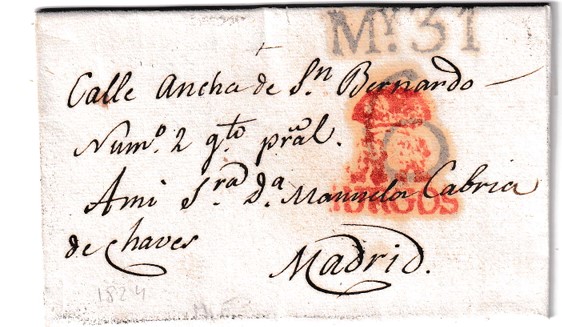 My. 31
Calle Ancha de Sn Bernardo
Numo. 2 qto pral.
Ami Sra da. Manuela Cabria
BURGOS
de Chaves
Madrid.
1824